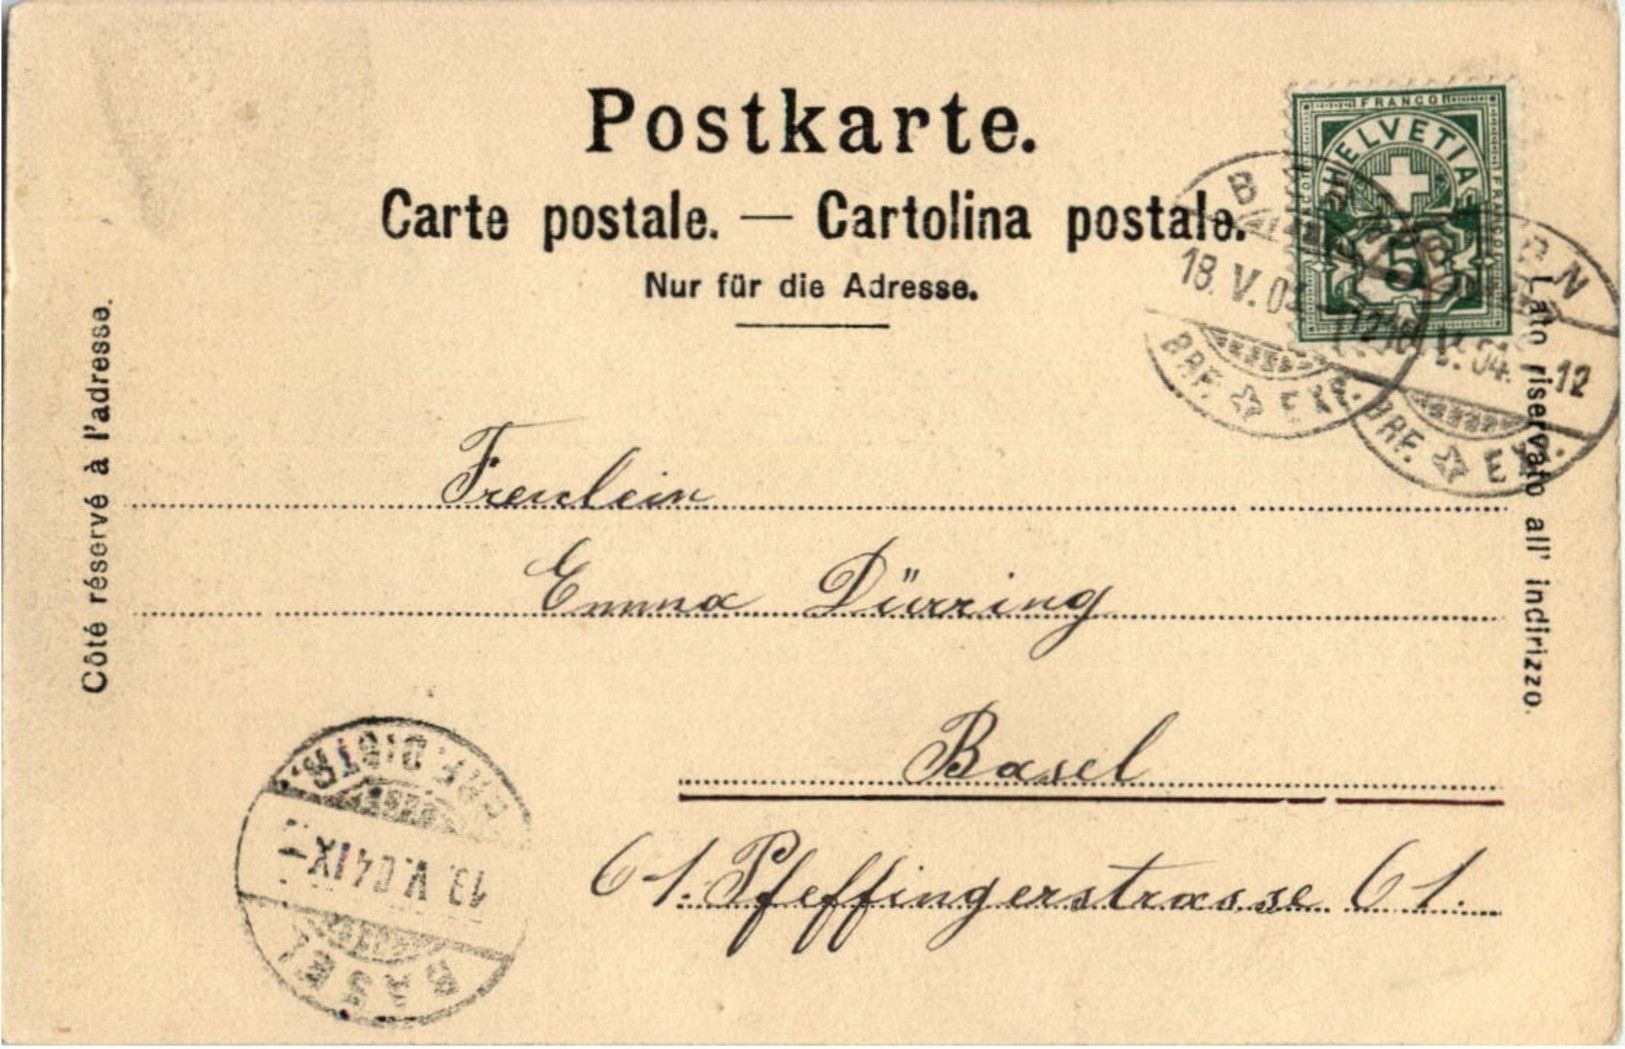 Postkarte.
Carte postale. — Cartolina postale.
Nur für die Adresse.
Côté réservé à l'adresse.
Lato riservato all' indirizzo.
FRANCO
HELVETIA
5
18. V. 04
BRF. ☆ EX.
V. 04. –12
BRF. ☆ EX.
Freulein
Emma Dürring
Basel
61. Pfeffingerstrasse 61.
BRF. DISTR.
19. V. 04 IX–
BASEL